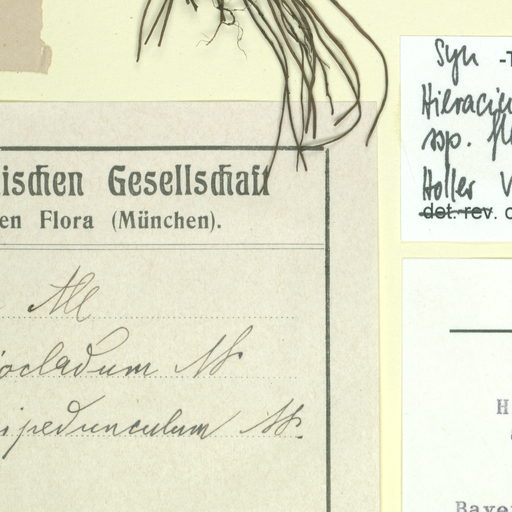 ischen Gesellschaft
en Flora (München).
All
ocladum NP.
ipedunculum NP.
Syn -T
Hieraciu
ssp. fl
Holler V
det. rev. c
H
Baye